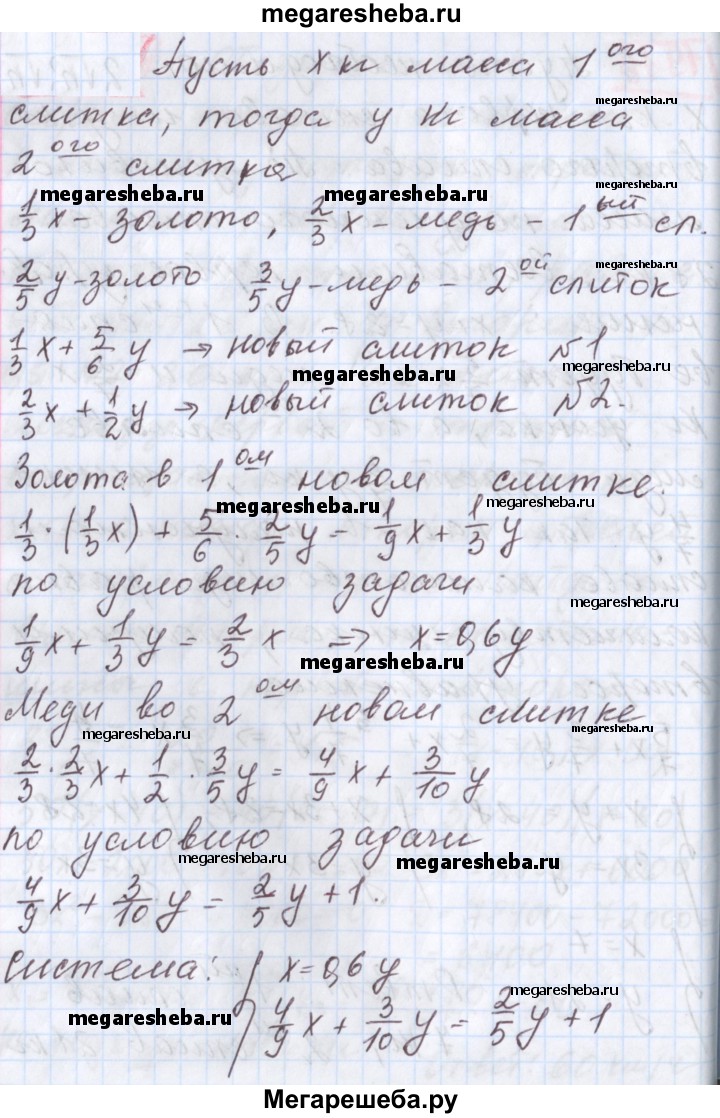 megaresheba.ru
Пусть x кг масса 1 ого
megaresheba.ru
слитка, тогда y кг масса
2 ого слитка
megaresheba.ru megaresheba.ru
1/3 x - золото, 2/3 x - медь - 1 ый сл.
megaresheba.ru
2/5 y - золото 3/5 y - медь - 2 ой слиток
1/3 x + 5/6 y → новый слиток №1
megaresheba.ru megaresheba.ru
2/3 x + 1/2 y → новый слиток №2.
Золота в 1 ом новом слитке.
megaresheba.ru megaresheba.ru
1/3 · (1/3 x) + 5/6 · 2/5 y = 1/9 x + 1/3 y
по условию задачи
megaresheba.ru
1/9 x + 1/3 y = 2/3 x => x = 0,6 y
megaresheba.ru
Меди во 2 ом новом слитке
megaresheba.ru megaresheba.ru
2/3 · 2/3 x + 1/2 · 3/5 y = 4/9 x + 3/10 y
по условию задачи
megaresheba.ru megaresheba.ru
4/9 x + 3/10 y = 2/5 y + 1.
Система: { x = 0,6 y
megaresheba.ru megaresheba.ru
4/9 x + 3/10 y = 2/5 y + 1
Мегарешеба.ру